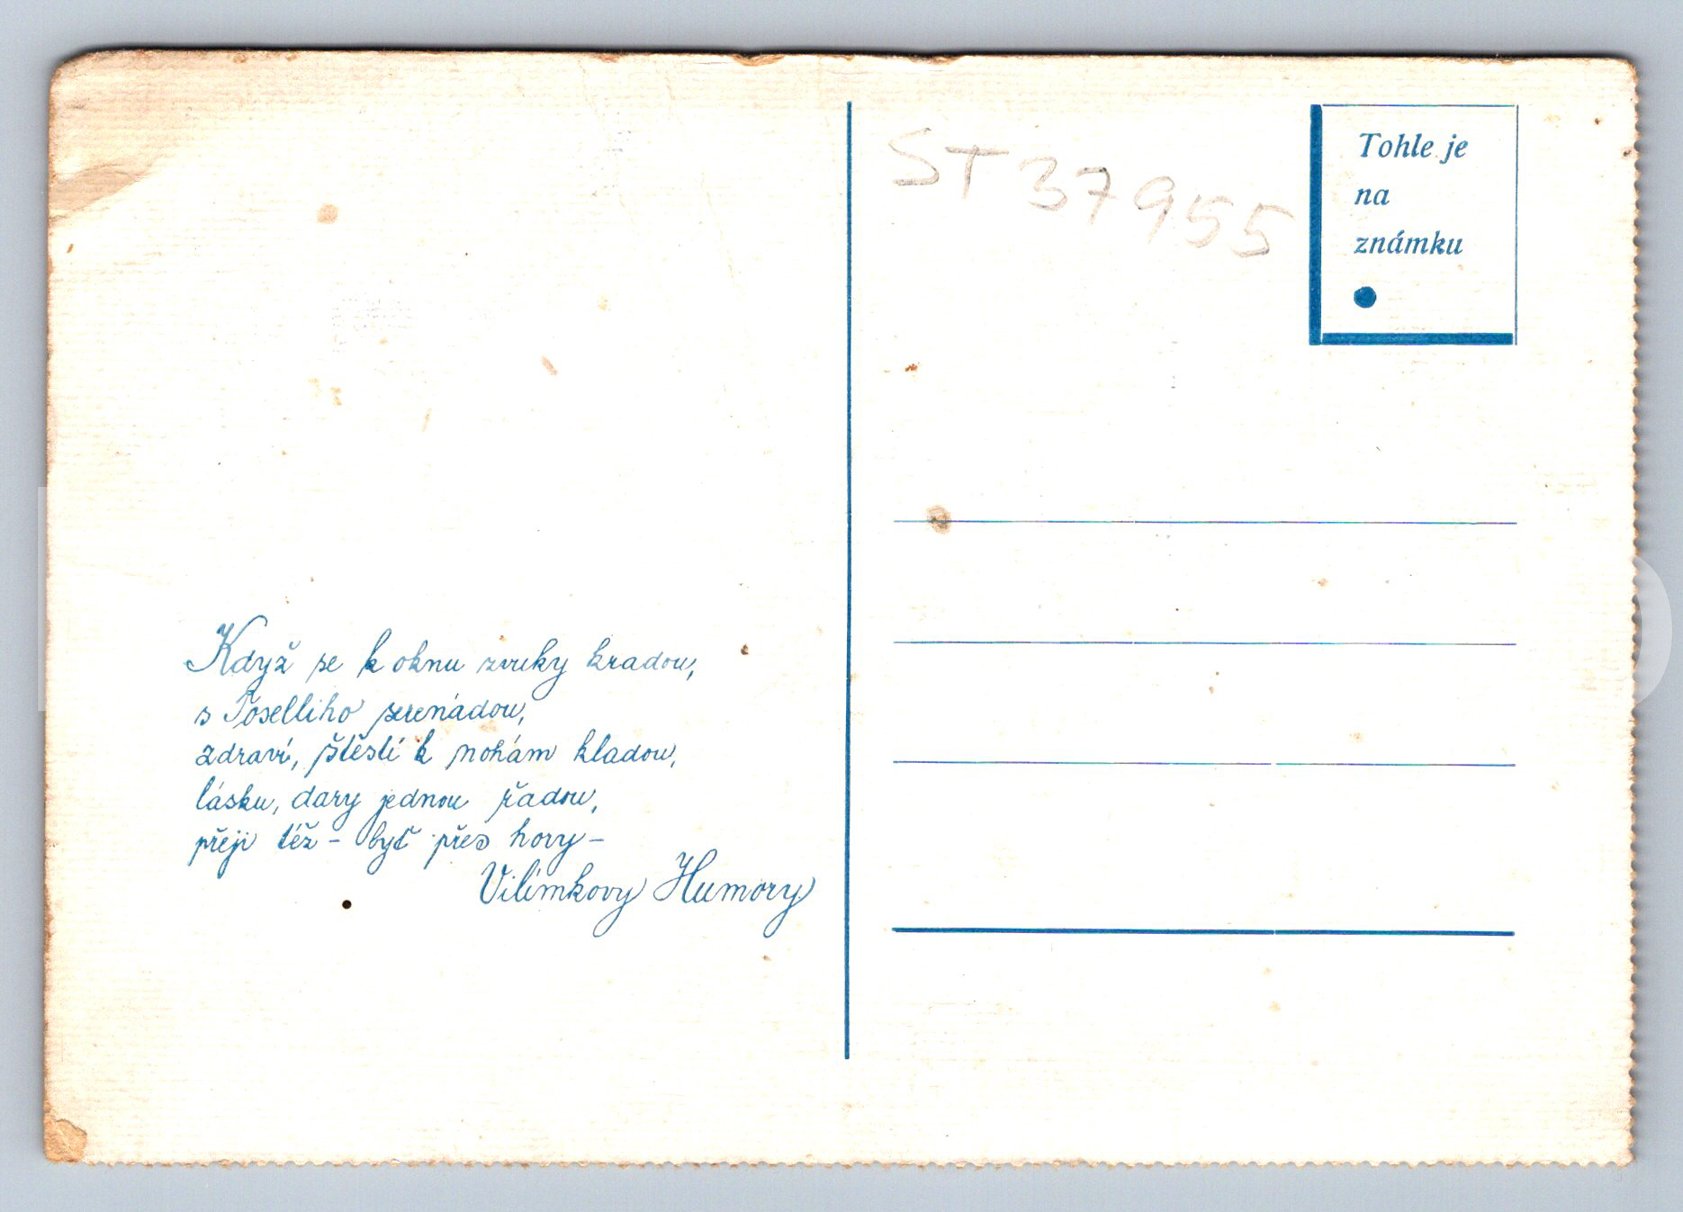 ST 37955
Tohle je
na
známku
Když se k oknu zvuky kradou,
s Toselliho serenádou,
zdraví, štěstí k nohám kladou,
lásku, dary jednou řadou,
přeji též - byť přes hory -
Vilímkovy Humory